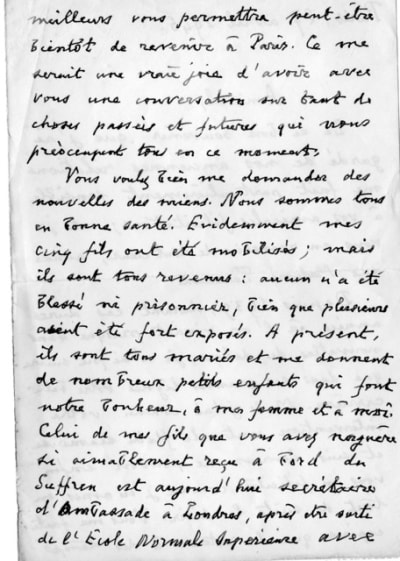 meilleurs vous permettra peut-être
bientôt de revenir à Paris. Ce me
serait une vraie joie d'avoir avec
vous une conversation sur tant de
choses passées et futures qui nous
préoccupent tous en ce moment.
Vous voulez bien me demander des
nouvelles des miens. Nous sommes tous
en bonne santé. Evidemment mes
cinq fils ont été mobilisés; mais
ils sont tous revenus: aucun n'a été
blessé ni prisonnier, bien que plusieurs
aient été fort exposés. A présent,
ils sont tous mariés et me donnent
de nombreux petits enfants qui font
notre bonheur, à ma femme et à moi.
Celui de mes fils que vous avez naguère
si aimablement reçu à bord du
Suffren est aujourd'hui secrétaire
d'Ambassade à Londres, après être sorti
de l'Ecole Normale Supérieure avec